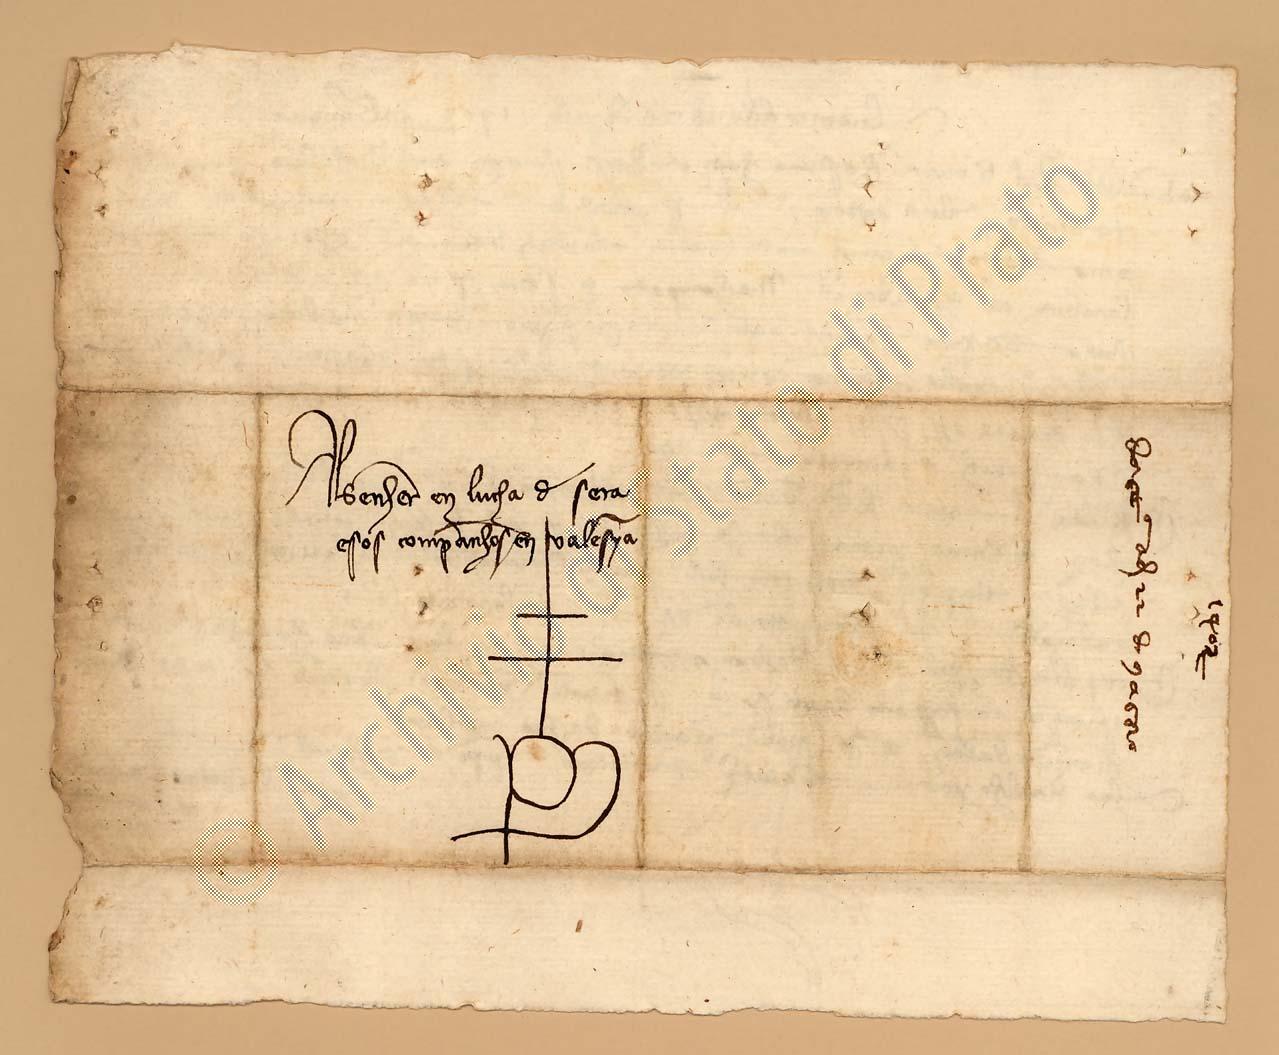 Al senher en lucha de sera
e sos companhos en valesya
1402
© Archivio di Stato di Prato